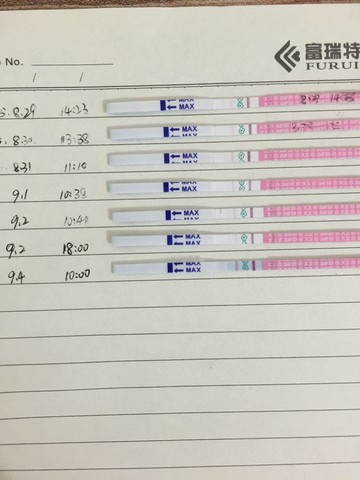 No.
富瑞特
FURUI
/ /
8.29 14:23 MAX
8.30 13:38 MAX
8.31 11:10 MAX
9.1 10:39 MAX
9.2 10:40 MAX
9.2 18:00 MAX
9.4 10:00 MAX
MAX